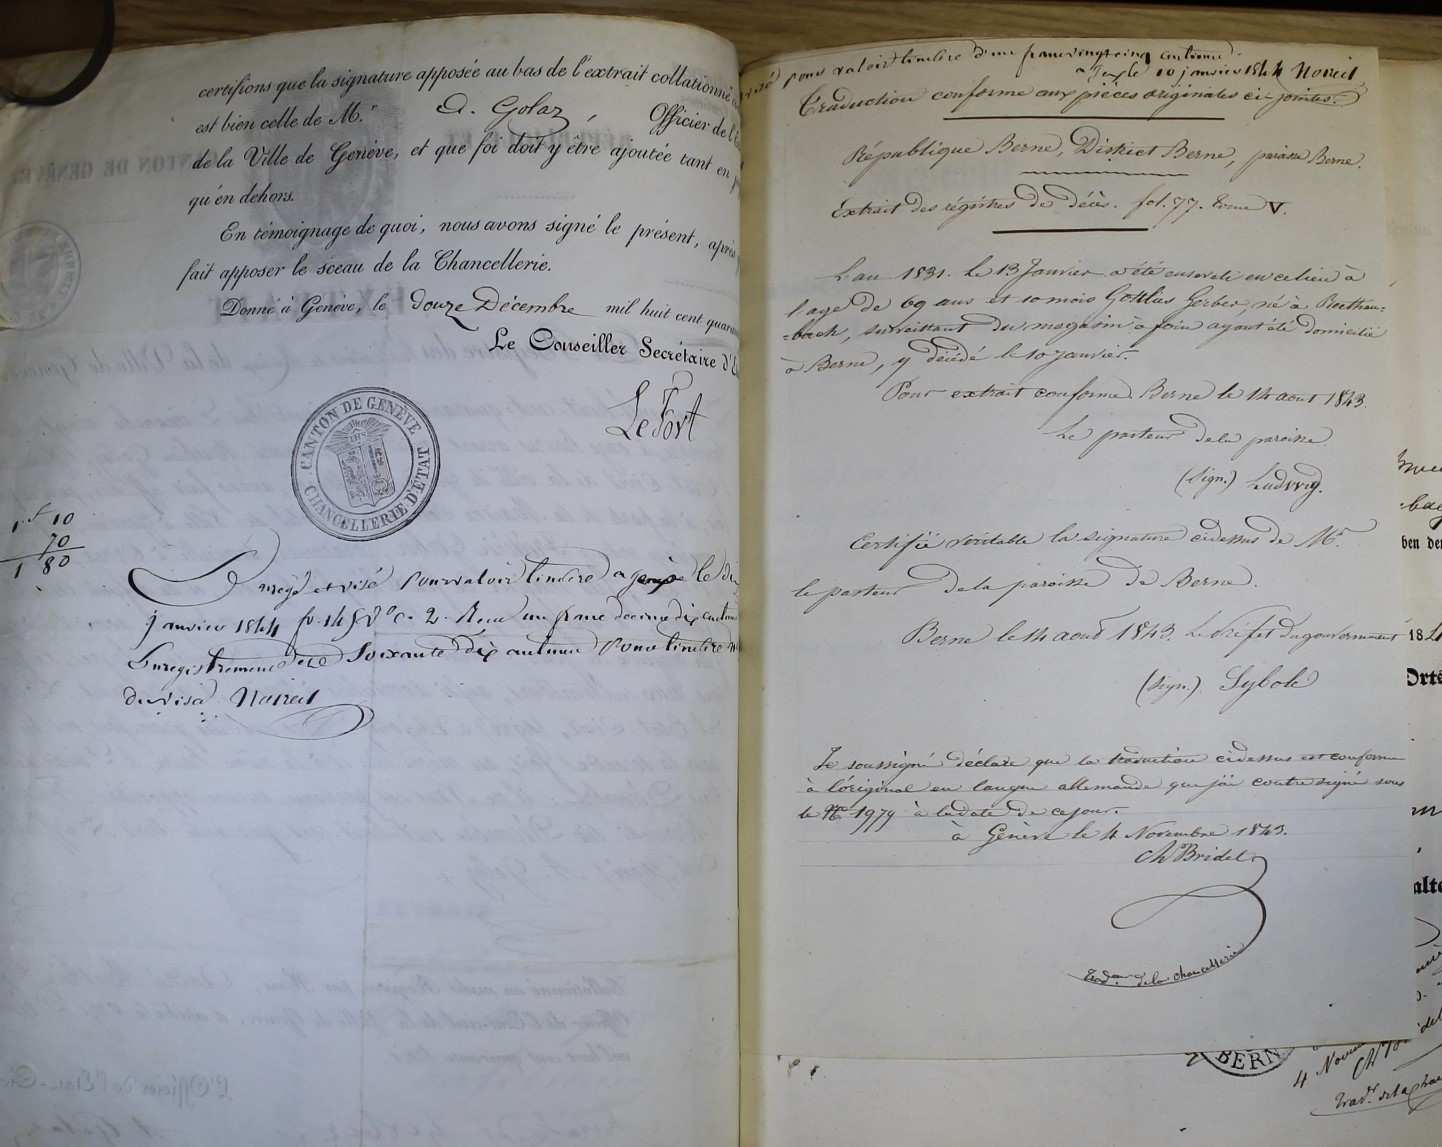 certifions que la signature apposée au bas de l'extrait collationné
est bien celle de Mr. A. Golaz, Officier de l'É
de la Ville de Genève, et que foi doit y être ajoutée tant en
qu'en dehors.
En témoignage de quoi, nous avons signé le présent, après
fait apposer le sceau de la Chancellerie.
Donné à Genève, le douze Décembre mil huit cent quaran
Le Conseiller Secrétaire d'É
Le Fort
CANTON DE GENÈVE
CHANCELLERIE D'ÉTAT
1 f 10
70
1 80
Enregé et visé pour valoir timbre a gex le dix
janvier 1844 fo. 14 Vo c. 2. Recu un franc decime dix centimes
Enregistrement et Soixante dix centimes pour timbre
du visa Nareil
visé pour valoir timbre d'un franc vingt cinq centimes
a Gex le 10 janvier 1844 Nareil
Traduction conforme aux pièces originales ci-jointes.
République Berne, District Berne, paroisse Berne.
Extrait des régistres de décès. fol. 77. tome V.
L'an 1831. le 13 Janvier a été enseveli en ce lieu à
l'age de 69 ans et 10 mois Gottlieb Gerber, né à Roethen-
-bach, surveillant du magasin à foin ayant été domicilié
à Berne, y décédé le 10 janvier.
Pour extrait conforme Berne le 14 aout 1843.
Le pasteur de la paroisse
(Sign.) Ludwig.
Certifié véritable la signature cidessus de Mr.
le pasteur de la paroisse de Berne.
Berne le 14 aout 1843. Le Préfet du gouvernement
(Sign.)
Je soussigné déclare que la traduction cidessus est conforme
à l'original en langue allemande que j'ai contresigné sous
le No 1979 à la date de ce jour.
à Genève le 4 Novembre 1843.
Ch Bridel
Trad. de la chancellerie
18
Orts
ben der
alt
BERN
4 Novem
Ch
Trad. de la cha